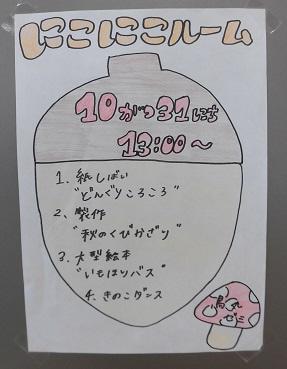 にこにこルーム
10がつ31にち
13:00〜
1. 紙しばい
"どんぐりころころ"
2. 製作
"秋のくびかざり"
3. 大型絵本
"いもほりバス"
4. きのこダンス
ゼミ